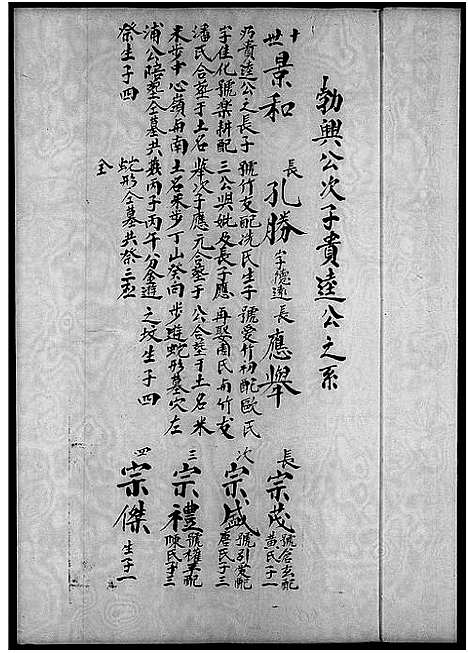 勃興公次子貴逵公之系
十世 景和
乃貴逵公之長子
字佳化號樂耕配
潘氏合塟于土名
米步中心嶺與南
浦公陪塟仝墓共
祭生子四
長 孔勝 字德達
號竹友配冼氏生子
三公與妣及長子應
舉次子應元合塟于
土名米步丁山癸向
兼丙子丙午分金進
蛇形仝墓共祭三
仝
長 應舉
號愛竹初配歐氏
再娶周氏與竹友
公合塟于土名米
步進蛇形墓穴左
之坟生子四
長 宗茂 配黃氏子一
次 宗盛 號引愛配唐氏子三
三 宗禮 配陳氏子三
四 宗傑 生子一